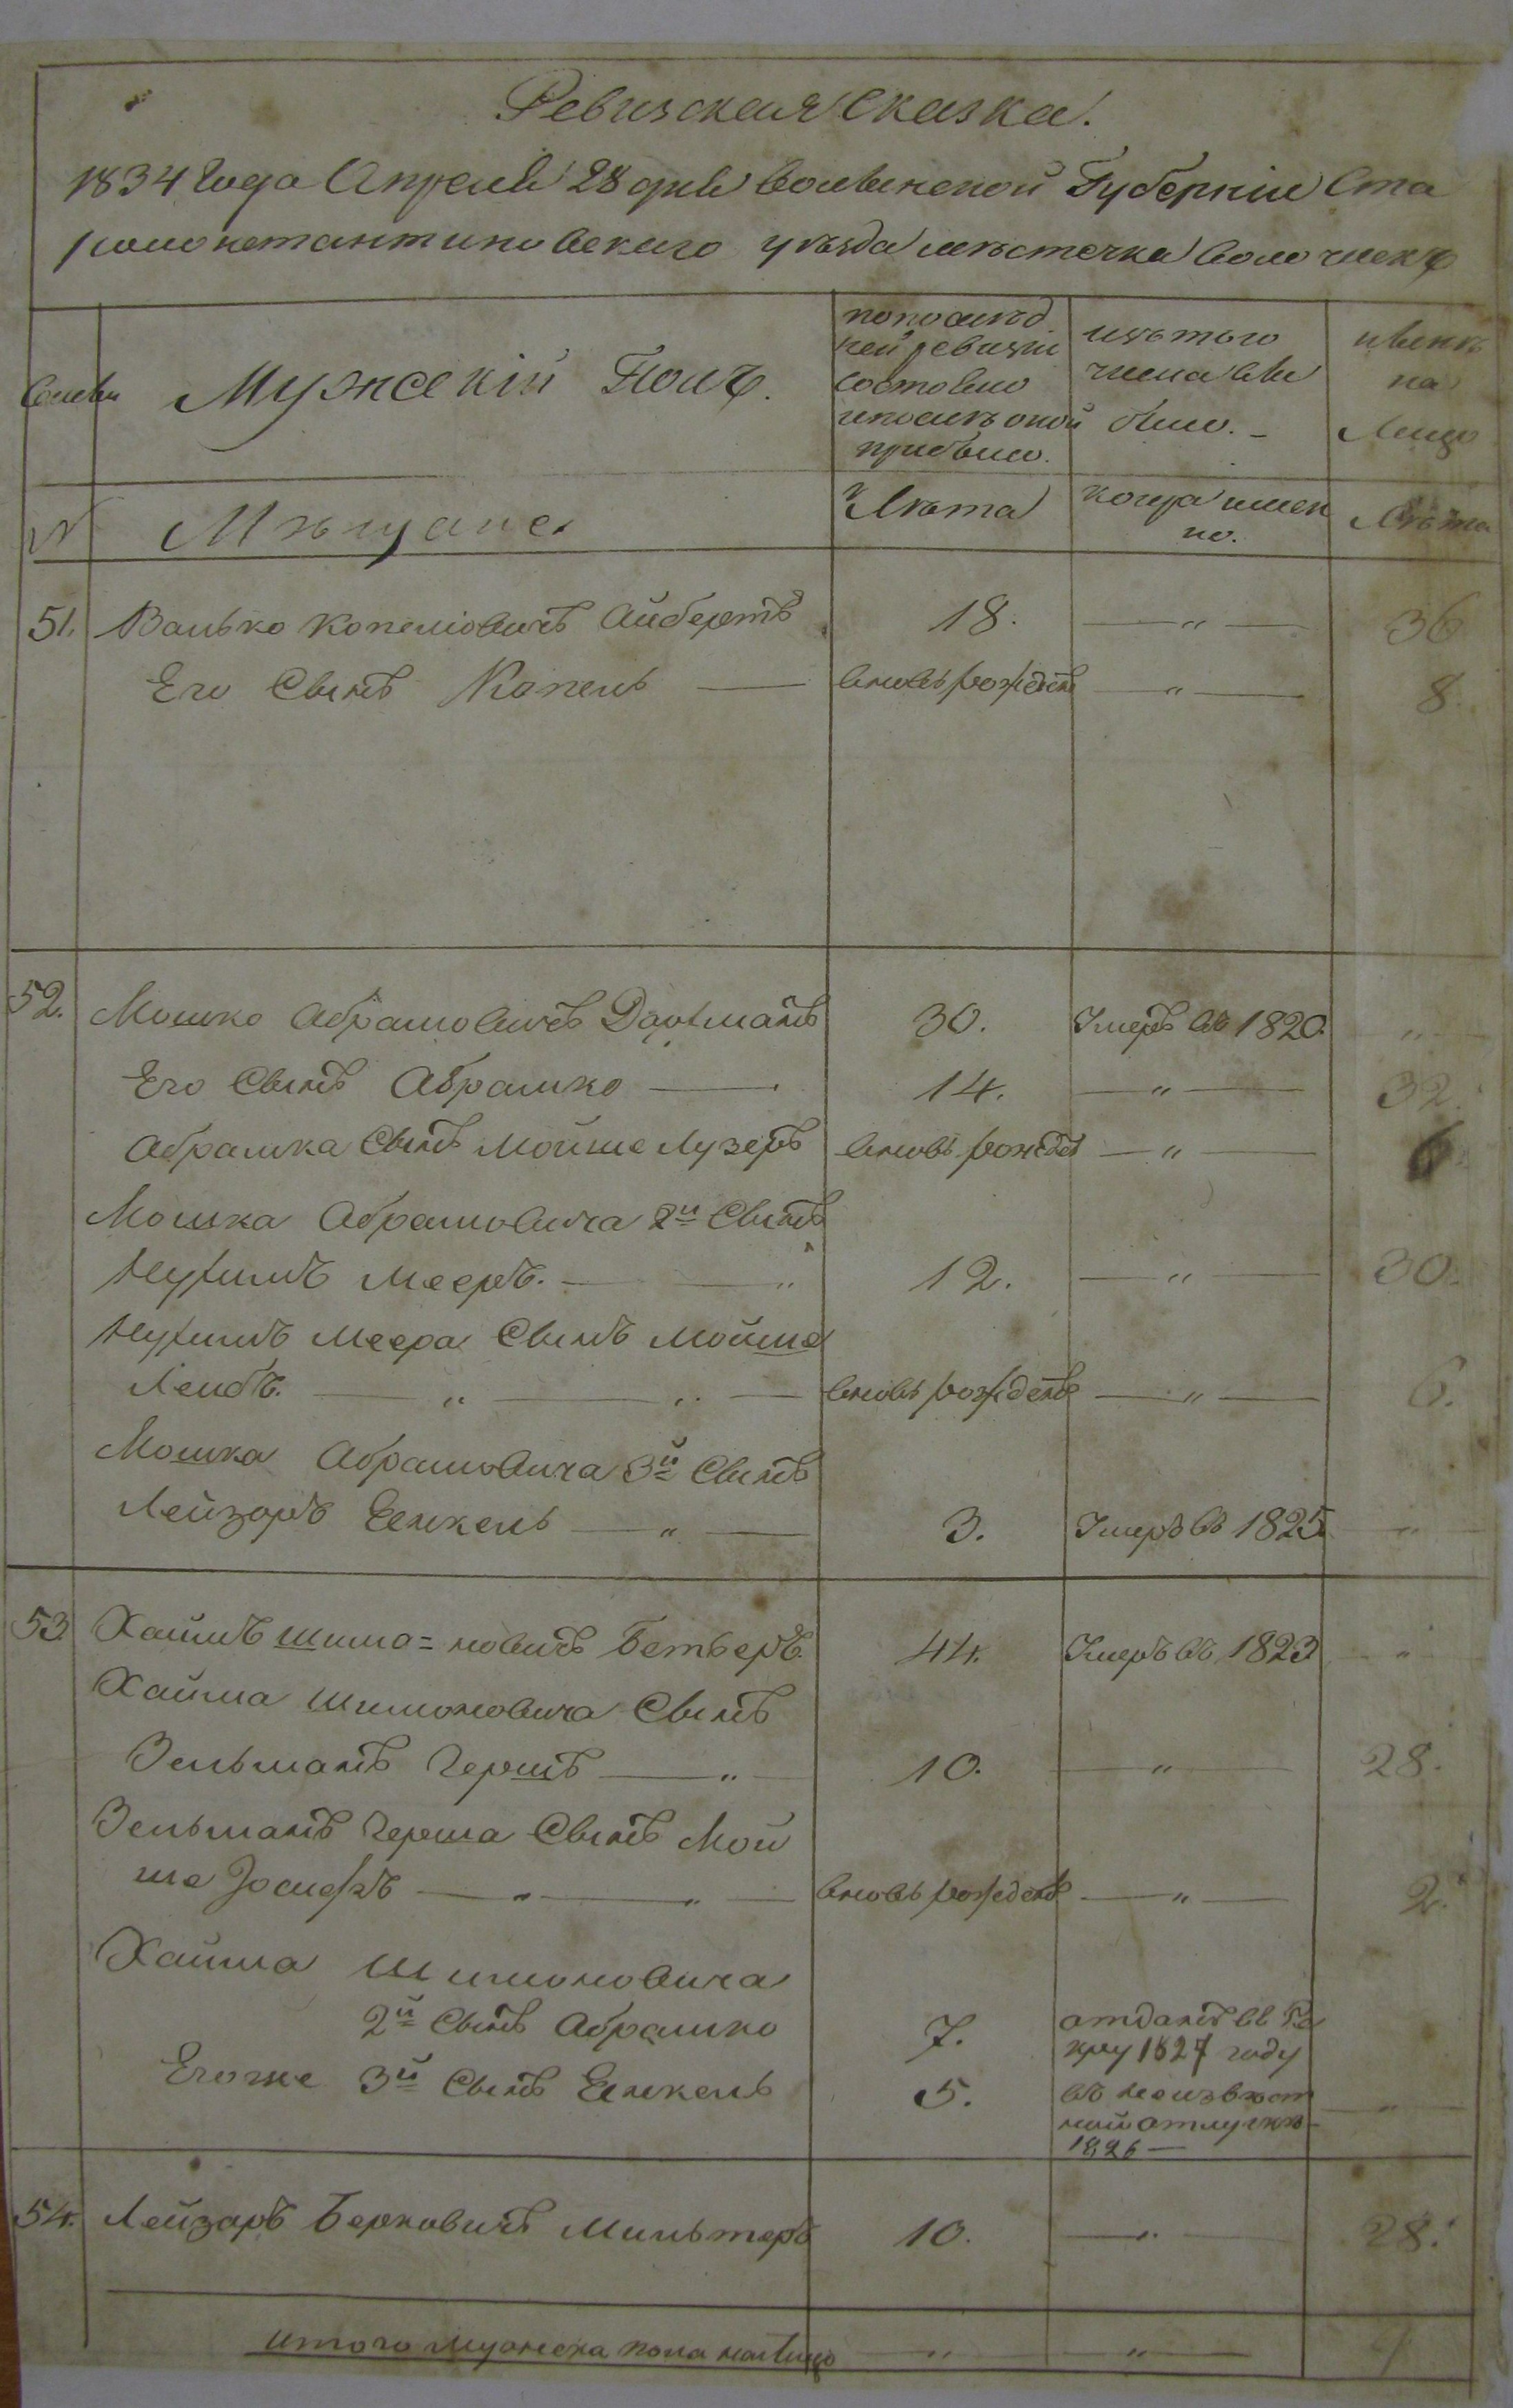 Ревизская Сказка.
1834 Года Апреля 28 дня Волынской Губерніи Ста
роконстантиновскаго уѣзда мѣстечка Волочискъ
Семьи
Мужескій Полъ.
попослѣд
ней ревизіи
состояло
ипослѣ оной
прибыло.
изъ того
числа вы
было. -
ны​нѣ
на
Лицо
№ Мѣщане. Лѣта когда имен
но.
Лѣта
51. Валько Копеліовичъ Айбертъ 18. — " — 36
Его Сынъ Копель — вновьрожденъ — " — 8.
52. Мошко Абрамовичъ 30. Умеръ въ 1820. "
Его Сынъ Абрамко — 14. — " — 32.
Абрамка Сынъ Мойше Лузеръ вновь рожден — " — 6.
Мошка Абрамовича 2й Сынъ
Нухимъ Мееръ. — " 12. — " — 30.
Нухимъ Меера Сынъ Мойше
Лейбъ. — " — " — вновь рожденъ — " — 6.
Мошка Абрамовича 3й Сынъ
Лейзоръ Енкель — " — 3. Умеръ въ 1825. "
53. Хаимъ Шимо= новичъ Бетверъ. 44. Умеръ въ 1823 "
Хаима Шимоновича Сынъ
Зельманъ Гершъ — " — 10. — " — 28.
Зельманъ Герша Сынъ Мой
ше Іосифъ — " — " — вновь рожденъ — " — 2.
Хаима Шимоновича
2й Сынъ Абрамко 7. отданъ вь Ре
круы 1827 году
Егоже 3й Сынъ Енкель 5. въ неизвѣст
ной отлучкѣ —
1826 —
"
54. Лейзаръ Берковичъ Мильтеръ 10. — " — 28.
Итого мужеска пола налицо — " — " —